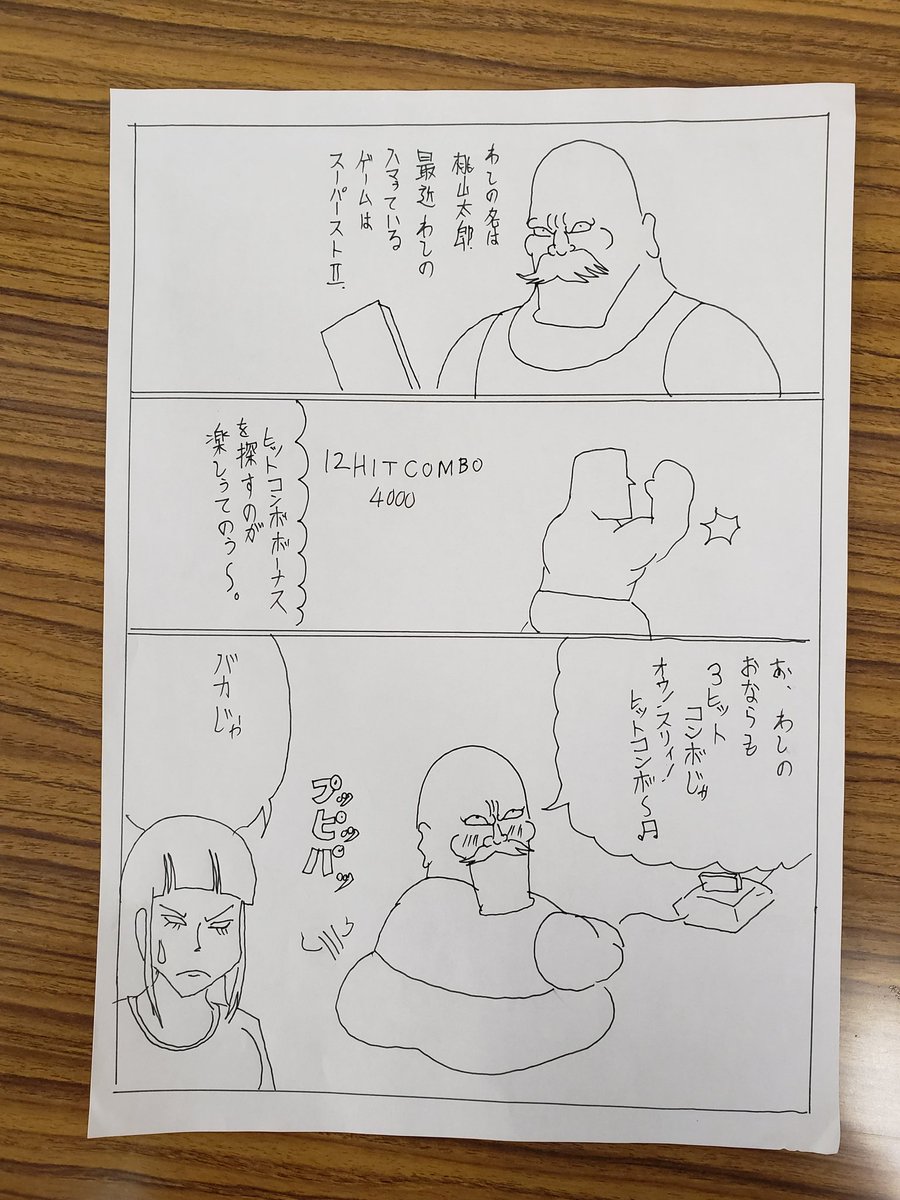 わしの名は
桃山太郎.
最近わしの
スマっている
ゲームは
スーパーストⅡ.
12HITCOMBO
4000
ヒットコンボボーナス
を探すのが
楽しうてのう〜。
お、わしの
おならも
3ヒット
コンボじゃ
オウ!スリィ!
ヒットコンボ〜♫
プッ
ピッ
パッ
バカじゃ